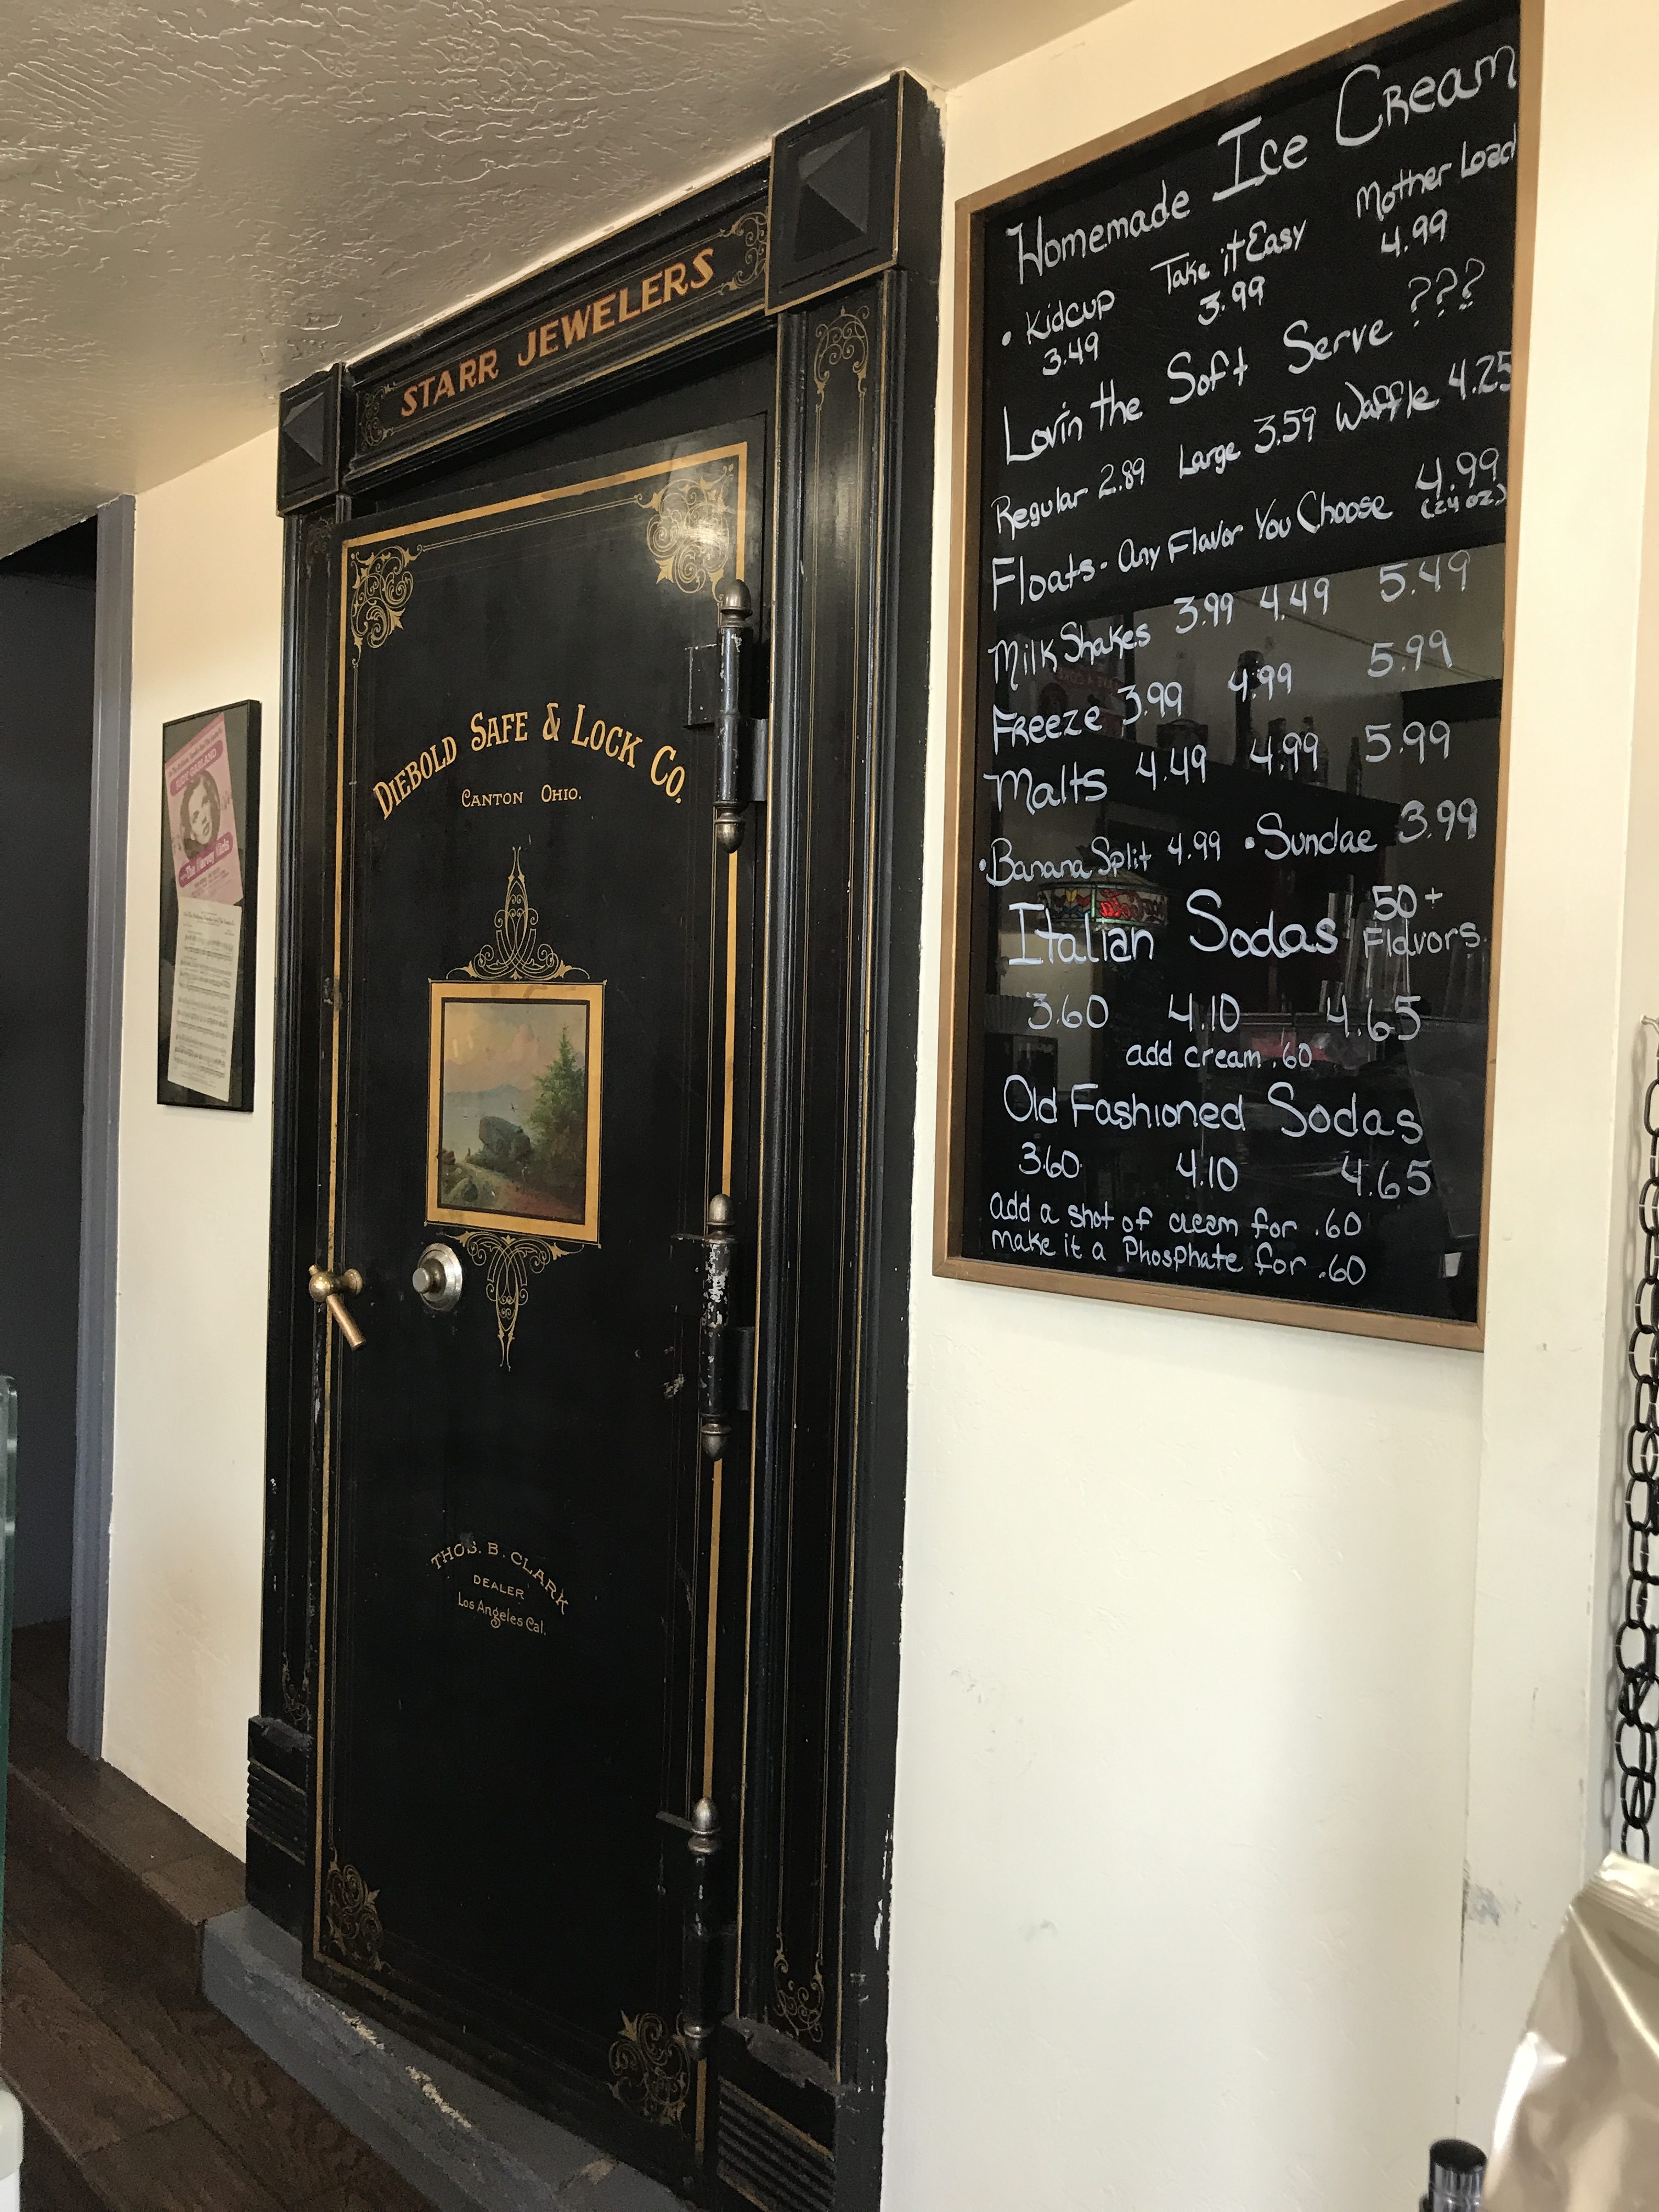 STARR JEWELERS
DIEBOLD SAFE & LOCK CO.
CANTON OHIO.
THOS. B. CLARK
DEALER
Los Angeles Cal.
JUDY GARLAND
The Harvey Girls
Homemade Ice Cream
• Kidcup Take it Easy Mother Load
3.49 3.99 4.99
Lovin the Soft Serve ???
Regular 2.89 Large 3.59 Waffle 4.25
Floats - Any Flavor You Choose 4.99
(24 oz)
Milk Shakes 3.99 4.49 5.49
Freeze 3.99 4.99 5.99
Malts 4.49 4.99 5.99
• Banana Split 4.99 • Sundae 3.99
Italian Sodas 50+
Flavors.
3.60 4.10 4.65
add cream .60
Old Fashioned Sodas
3.60 4.10 4.65
add a shot of cream for .60
make it a Phosphate for .60